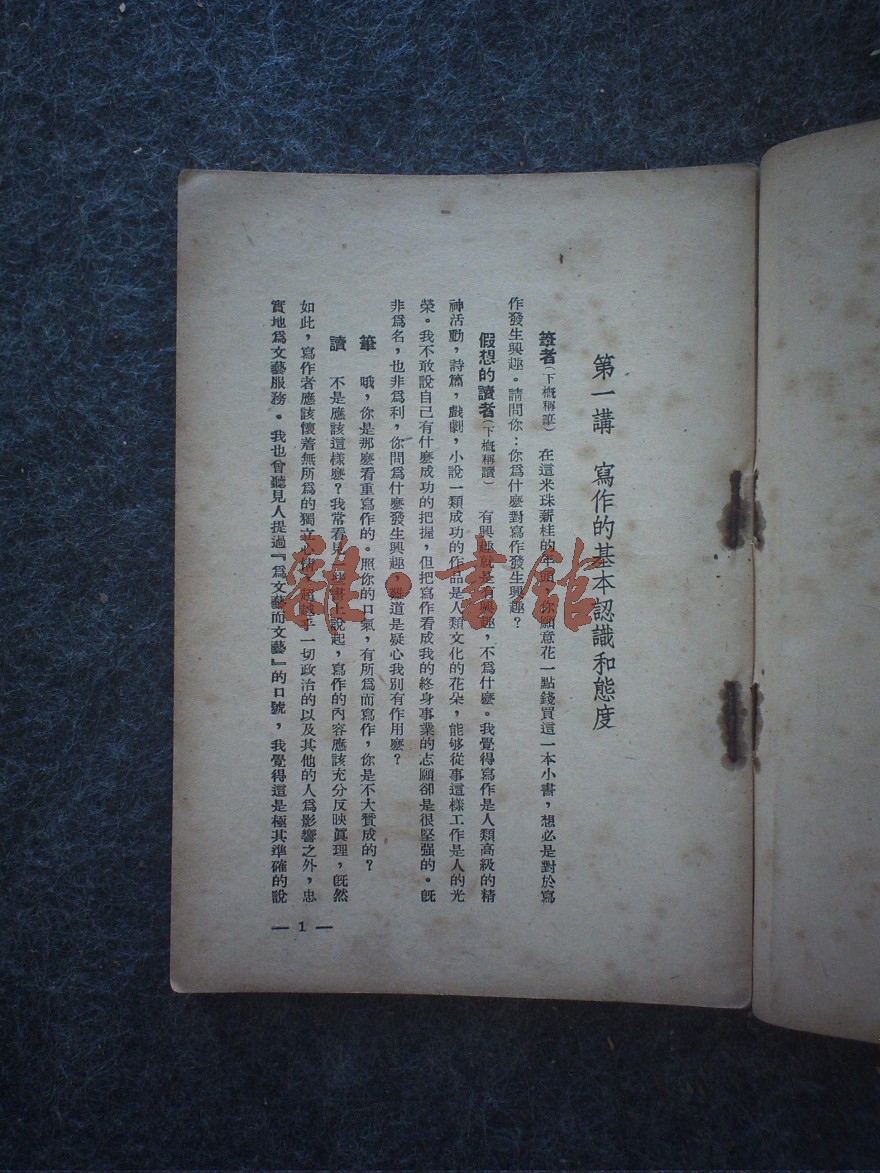 第一講　寫作的基本認識和態度
筆者(下概稱筆)　在這米珠薪桂的年頭，你願意花一點錢買這一本小書，想必是對於寫
作發生興趣。請問你：你爲什麽對寫作發生興趣？
假想的讀者(下概稱讀)　有興趣就是有興趣，不爲什麽。我覺得寫作是人類高級的精
神活動，詩篇，戲劇，小說一類成功的作品是人類文化的花朵，能够從事這樣工作是人的光
榮。我不敢說自己有什麽成功的把握，但把寫作看成我的終身事業的志願卻是很堅强的。旣
非爲名，也非爲利，你問爲什麽發生興趣，難道是疑心我別有作用麽？
筆　哦，你是那麽看重寫作的。照你的口氣，有所爲而寫作，你是不大贊成的？
讀　不是應該這樣麽？我常看見一些書上說起，寫作的內容應該充分反映眞理，旣然
如此，寫作者應該懷着無所爲的獨立心情，超越乎一切政治的以及其他的人爲影響之外，忠
實地爲文藝服務。我也曾聽見人提過『爲文藝而文藝』的口號，我覺得這是極其準確的說
— 1 —
雜·書館